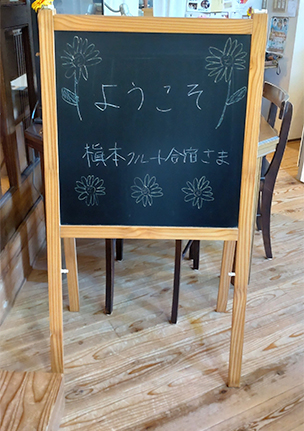 ようこそ
槇本フルート合宿さま